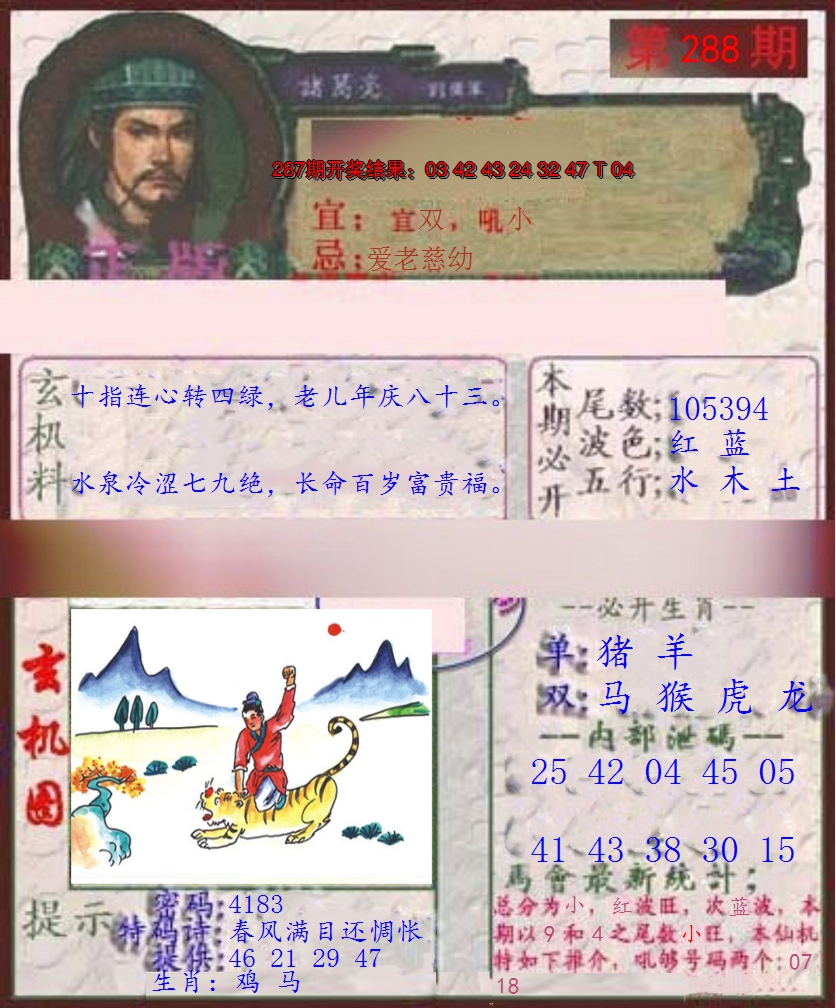 第 288 期
諸葛亮
287期开奖结果：03 42 43 24 32 47 T 04
宜：宜双，吼小
忌：爱老慈幼
正版
玄机料
十指连心转四绿，老儿年庆八十三。
水泉冷涩七九绝，长命百岁富贵福。
本期必开
尾数：105394
波色：红 蓝
五行：水 木 土
玄机图
--必开生肖--
单：猪 羊
双：马 猴 虎 龙
—内部泄碼—
25 42 04 45 05
41 43 38 30 15
馬會最新統計；
总分为小，红波旺，次蓝波，本
期以9和4之尾数小旺，本仙机
特如下推介，吼够号码两个：07
18
提示
密码：4183
特码诗：春风满目还惆怅
提供：46 21 29 47
生肖：鸡 马